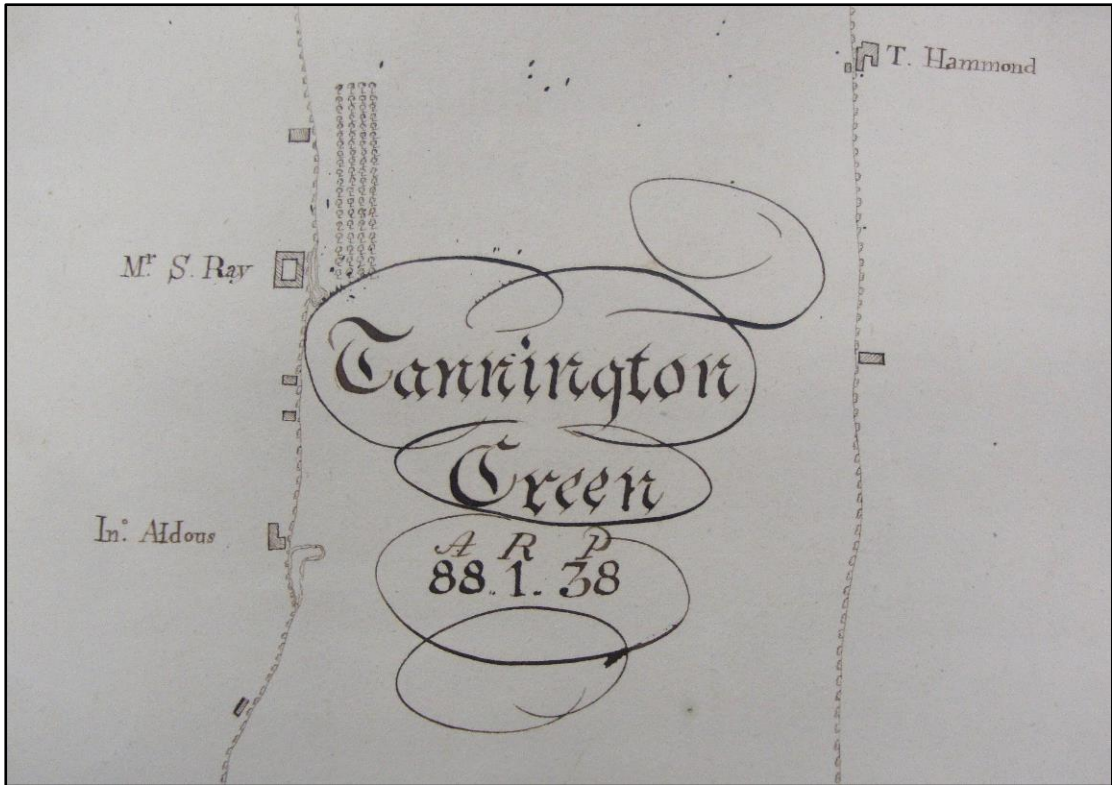 T. Hammond
Mr S. Ray
Tannington
Green
Jn.o Aldous
A R P
88. 1. 38